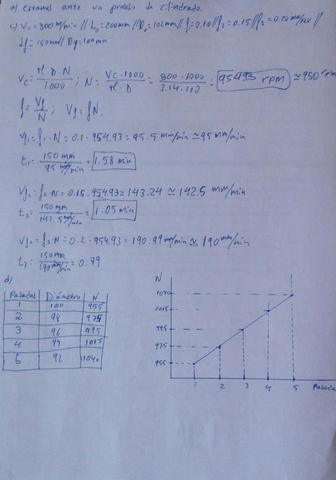 a) estamos ante un proceso de cilindrado.
c) Vc = 300 m/min // L0 = 200mm // D0 = 102mm // f1 = 0.10 // f2 = 0.15 // f3 = 0.20 mm/rev //
Lf = 150mm // Df = 100mm
Vc = π.D.N / 1000 ; N = Vc.1000 / π.D = 300.1000 / 3.14. = 954.93 rpm ≃ 950 rpm
f = Vf / N ; Vf = f.N.
Vf1 = f1.N = 0.1.954.93 = 95.5 mm/min ≃ 95 mm/min
t1 = 150 mm / 95 mm/min = 1.58 min
Vf2 = f2.N = 0.15.954.93 = 143.24 ≃ 142.5 mm/min
t2 = 150mm / 142.5 mm/min = 1.05 min
Vf3 = f3.N = 0.2.954.93 = 190.99 mm/min ≃ 190 mm/min
t3 = 150mm / 190 mm/min = 0.79
d)
Pasadas Diámetro N
1 100 955
2 98 975
3 96 995
4 94 1015
5 92 1040
N
1040
1015
995
975
955
1 2 3 4 5 Pasadas